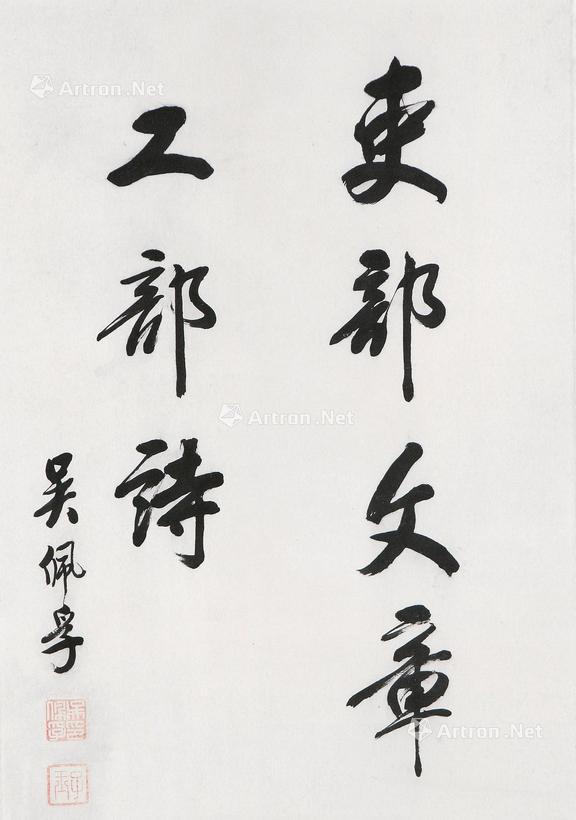 吏部文章
工部詩
吳佩孚
Artron.Net
Artron.Net
Artron.Net